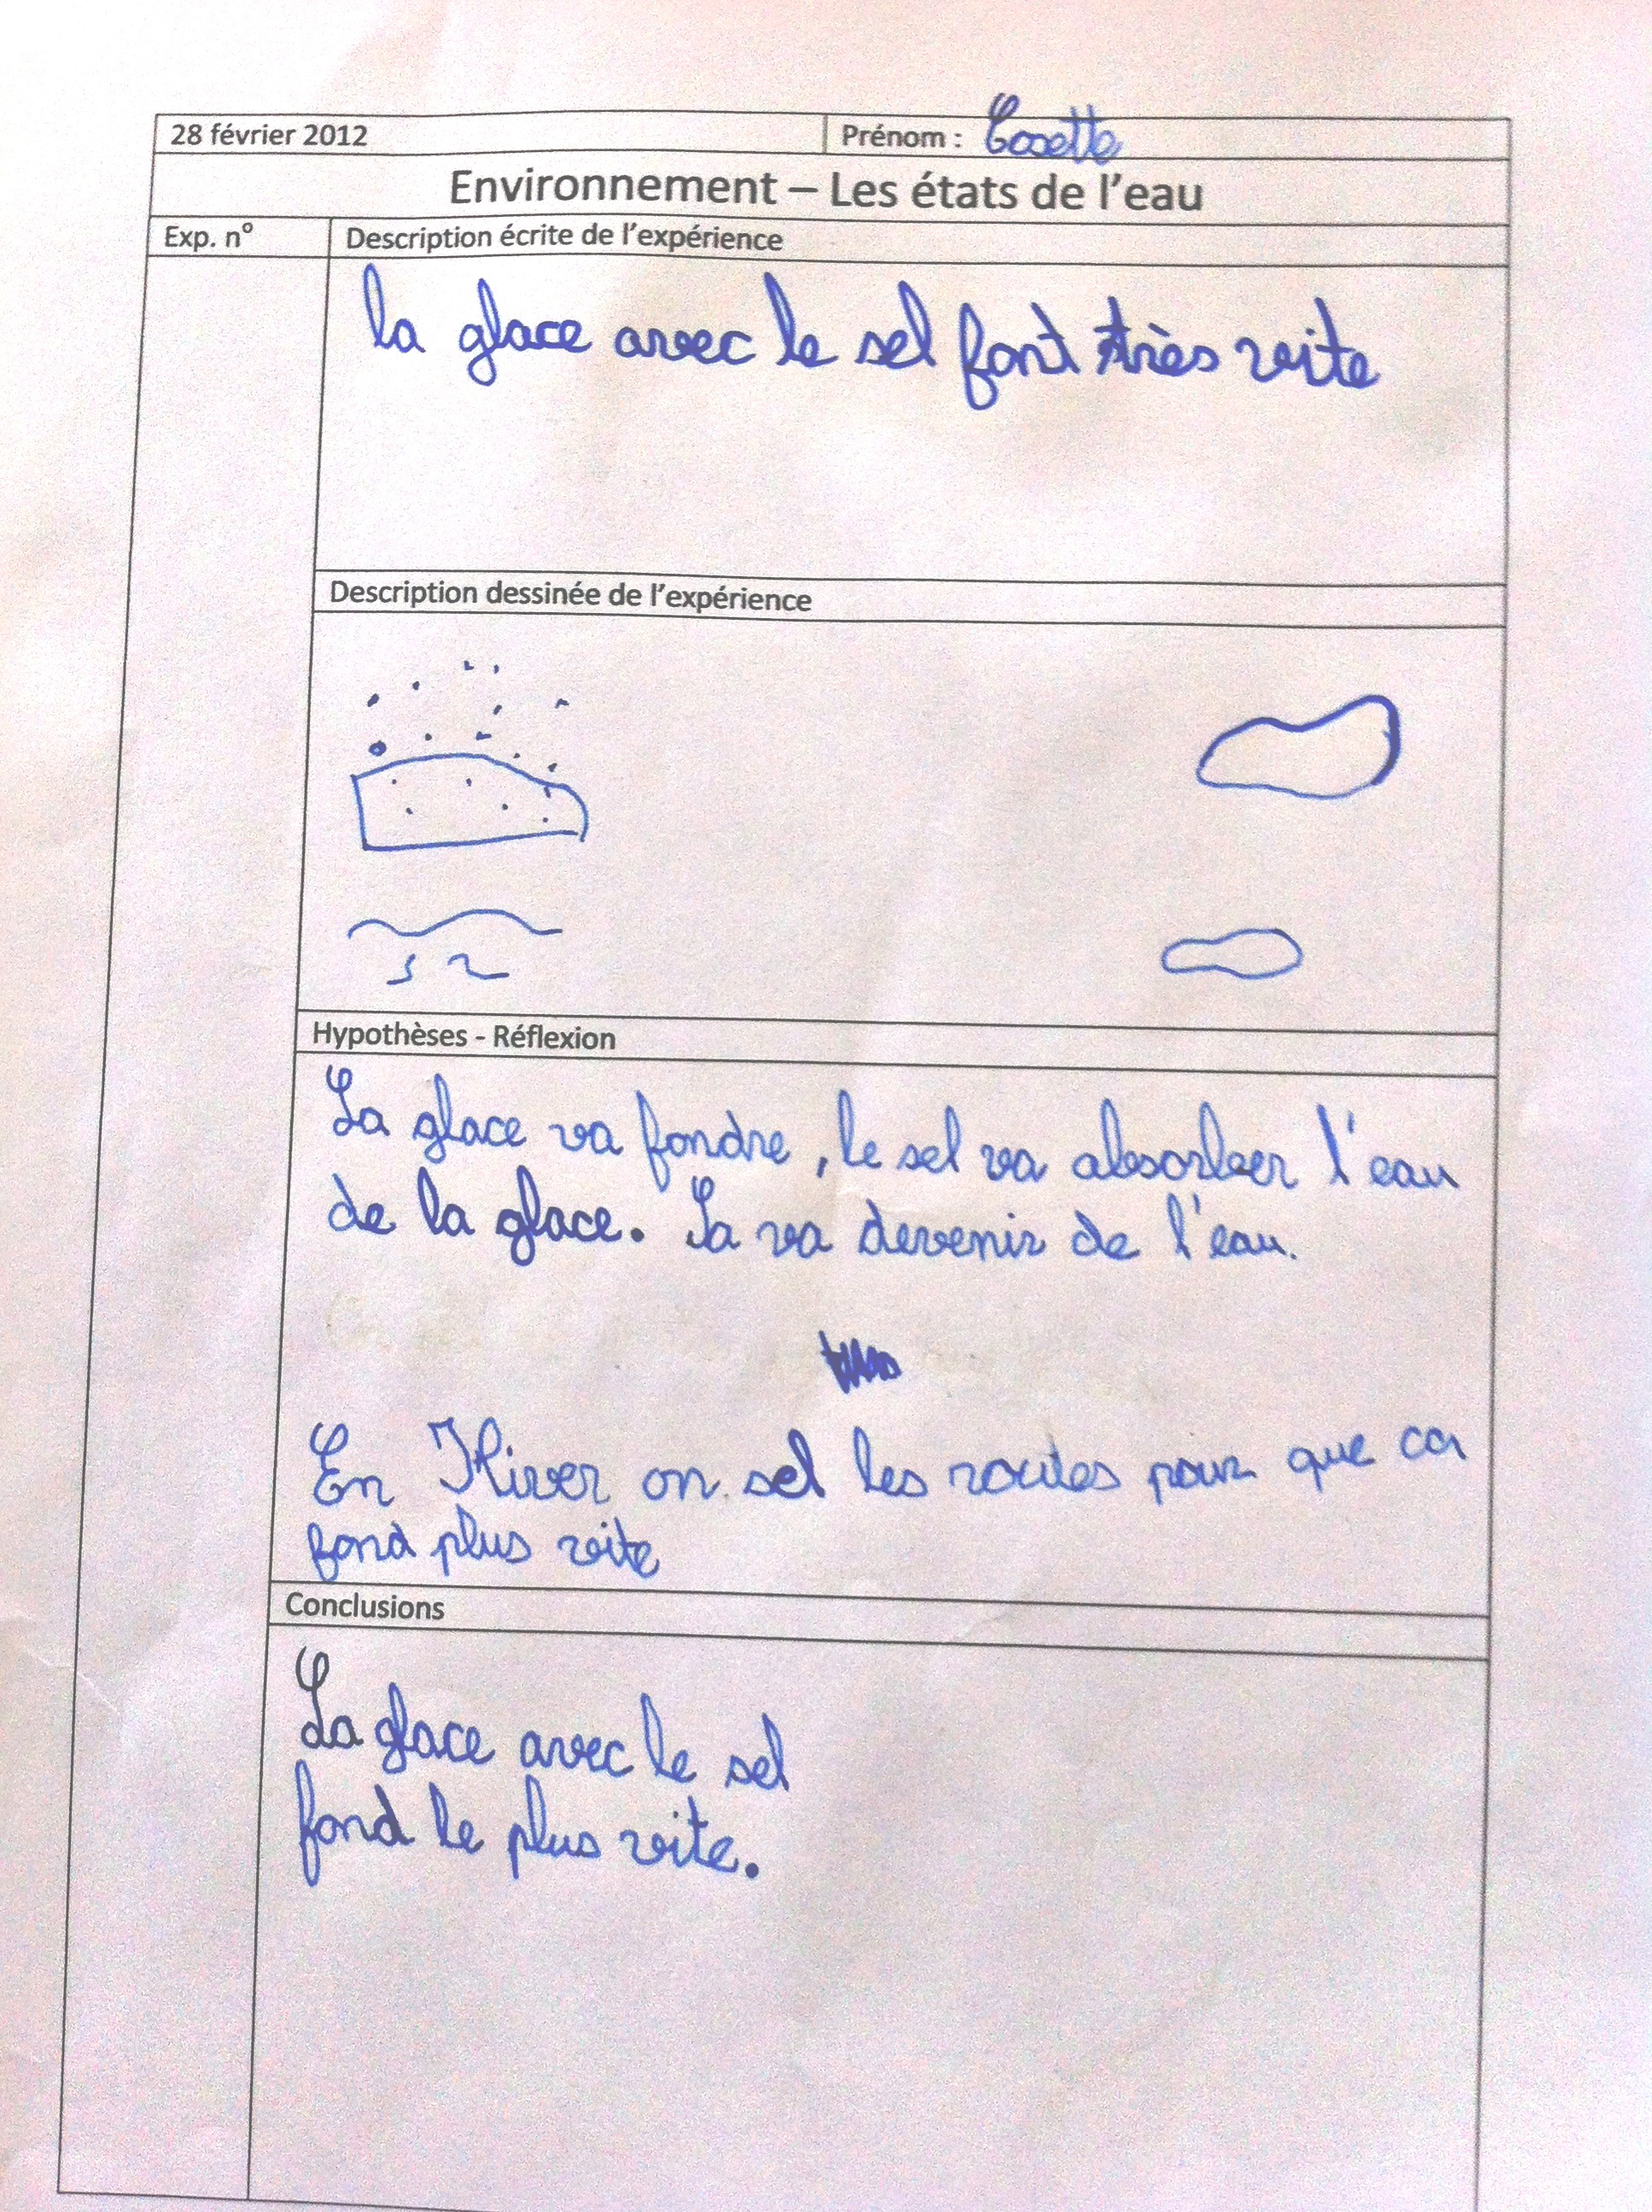 28 février 2012 Prénom : Cosette
Environnement – Les états de l'eau
Exp. n° Description écrite de l'expérience
la glace avec le sel font très vite
Description dessinée de l'expérience
Hypothèses - Réflexion
La glace va fondre, le sel va absorber l'eau
de la glace. Sa va devenir de l'eau.
En Hiver on sel les routes pour que ca
fond plus vite
Conclusions
La glace avec le sel
fond le plus vite.